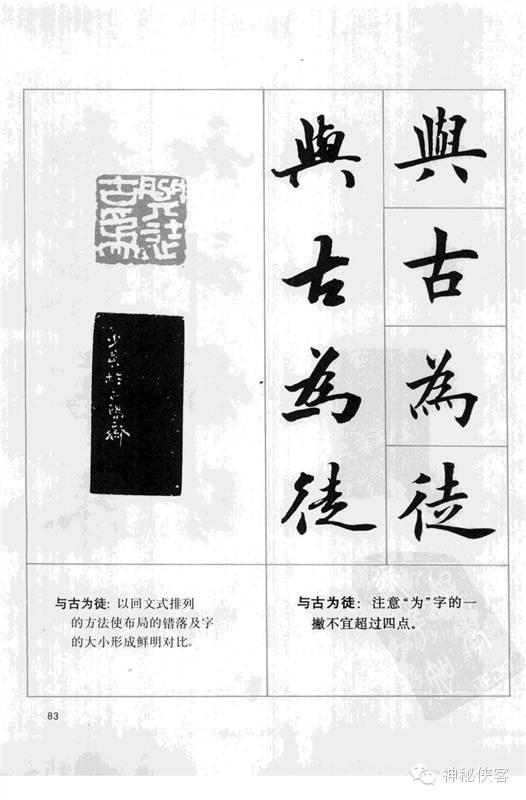 與古為徒
與古為徒
与古为徒：以回文式排列
的方法使布局的错落及字
的大小形成鲜明对比。
与古为徒：注意“为”字的一
撇不宜超过四点。
83
神秘侠客